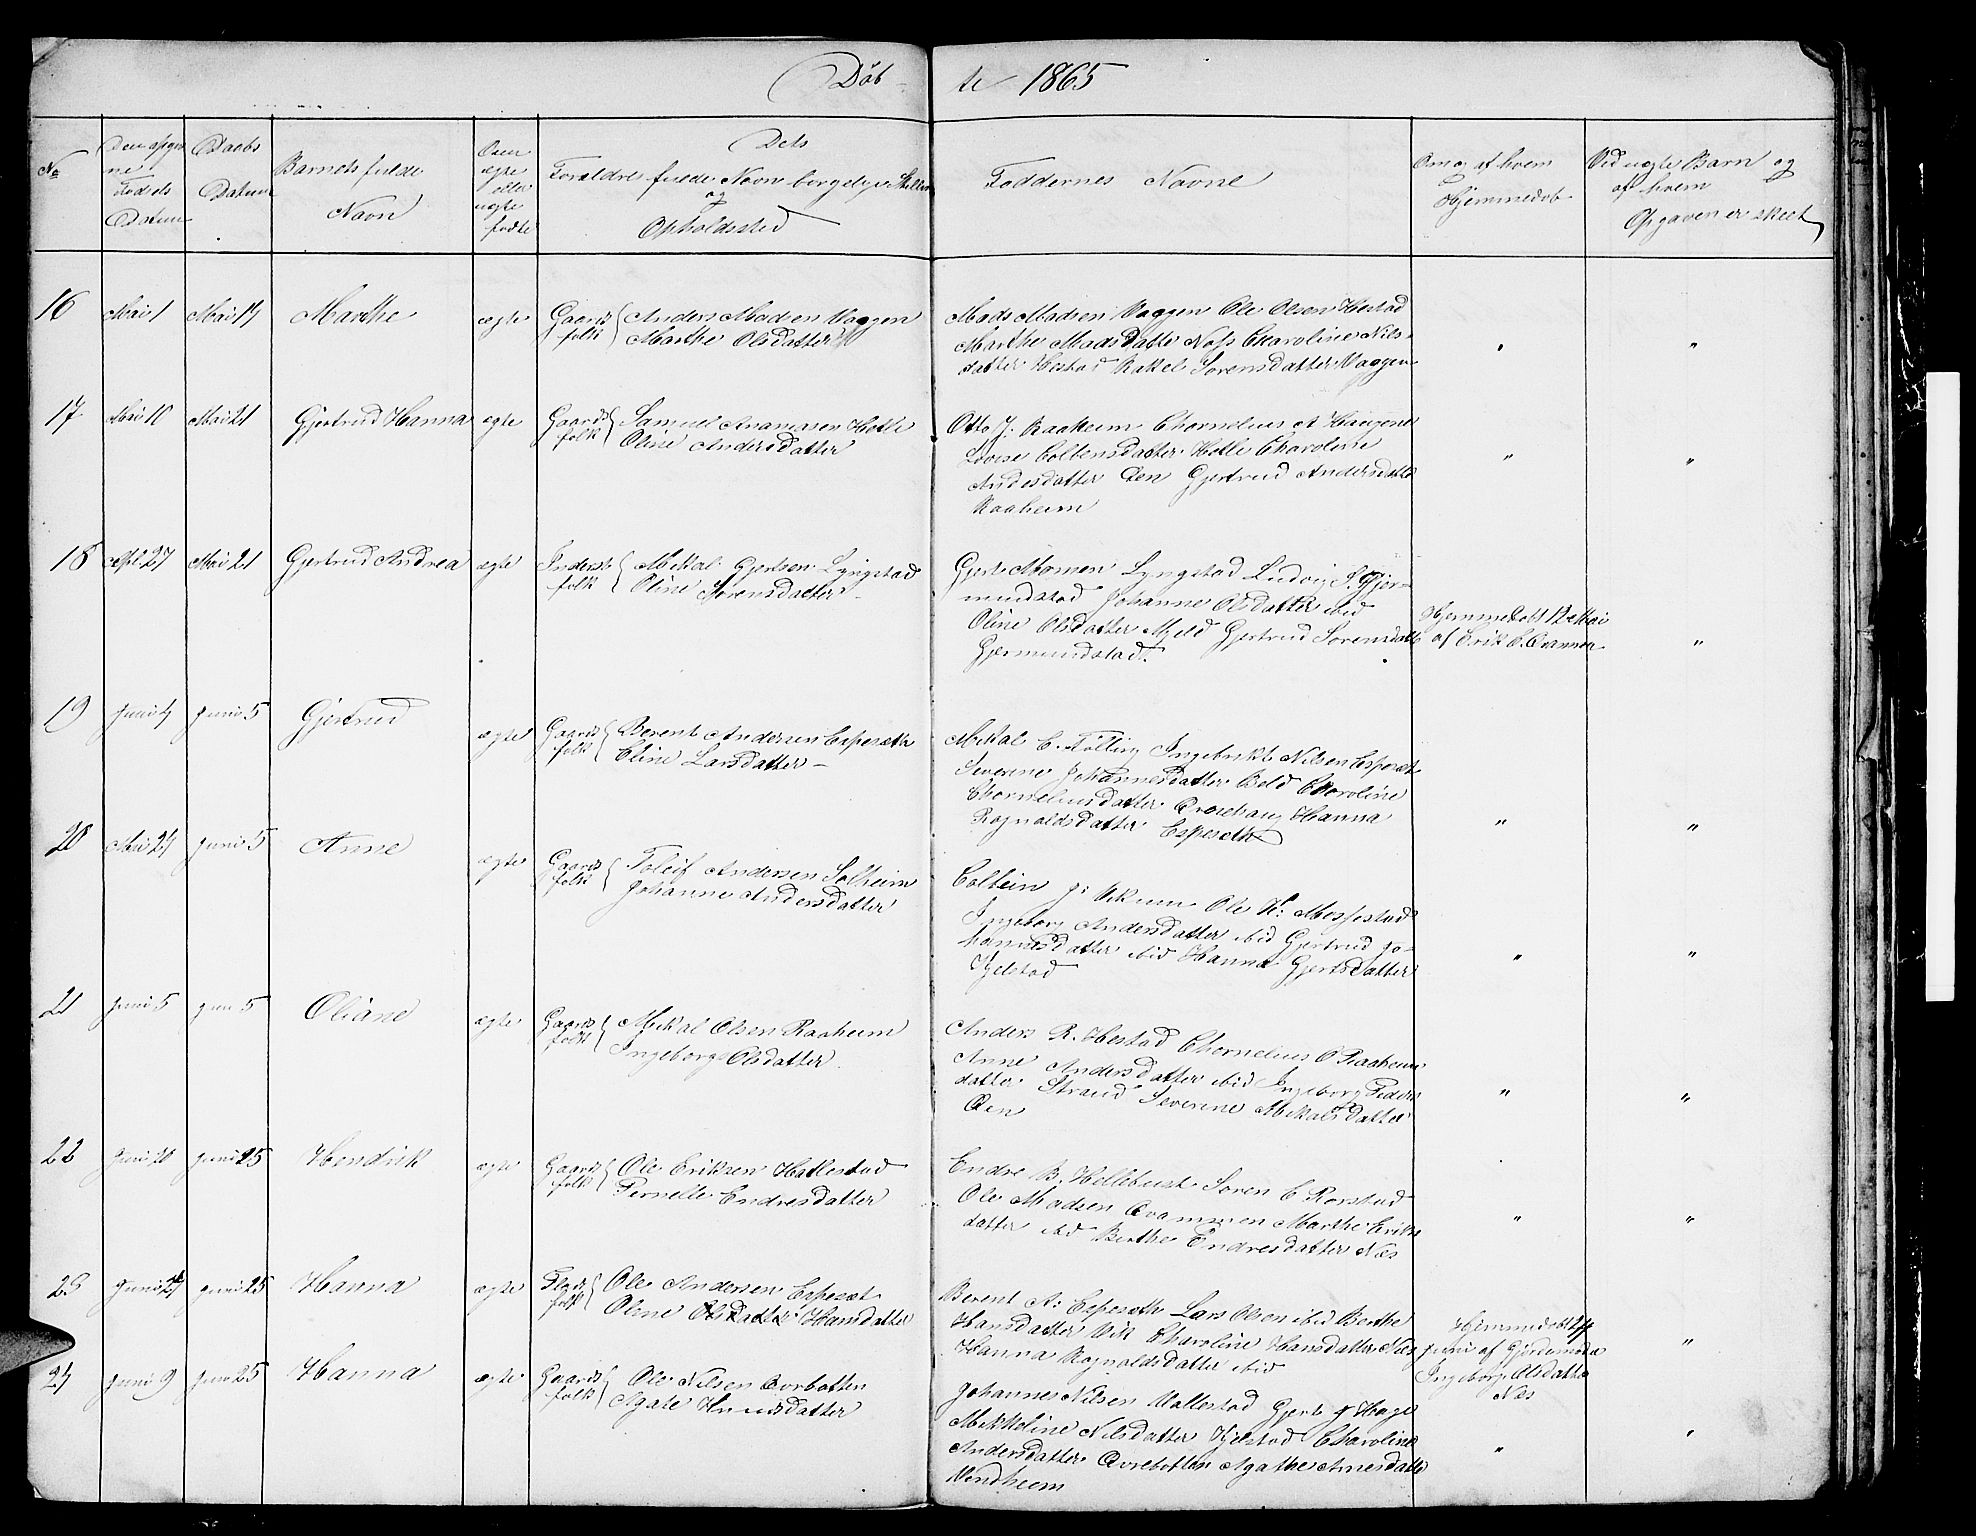 Døb- te 1865
No
Den opgivne Fødsels Datum
Daabs Datum
Barnets fulde Navn
Om ægte eller uægte fødte
Dets Forældre fulde Navn borgelige Stilling og Opholdssted
Faddernes Navne
Om og af hvem Hjemmedøb
Ved uægte Barn og af hvem Opgaven er skeet
16 Mai 1 Mai 14 Marthe ægte Gaardfolk Anders Madsen Vaagen
Marthe Olsdatter
Mads Madsen Vaagen Ole Olsen Hestad
Marthe Madsdatter Næss Charoline Nils-
datter Hestad Rakel Sorensdatter Vaagen
" "
17 Mai 10 Mai 21 Gjertrud Hanna ægte Gaardfolk Samuel Ananiasen Hatle
Oline Andersdatter
Otto J. Raaheim Chornelius A Haugene
Lovise Coltensdatter Hatle Charoline
Andesdatter Øen Gjertrud Andersdatter
Raaheim
" "
18 Apl 27 Mai 21 Gjertrud Andrea ægte Inderstfolk Mikal Gjertsen Lyngstad
Oline Sørensdatter
Gjert Monsen Lyngstad Ludvig S. Gjer-
mundstad Johanne Olsdatter ibid
Oline Olsdatter Mjeld Gjertrud Sorensdatter
Gjermundstad.
Hjemmedøbt 12 Mai
af Erik E. Qvammen
"
19 Juni 4 Juni 5 Gjertrud ægte Gaardsfolk Berent Andersen Espeseth
Eline Larsdatter
Mikal E. Tølling Ingebrikt Nilsen Espeset
Severine Johannesdatter Beld Charoline
Chorneliusdatter Hanna
Ragnaldsdatter Espeseth
" "
20 Mai 24 Juni 5 Anne ægte Gaardsfolk Toleif Andersen Solheim
Johanne Andersdatter
Coltein J: Vikum Ole H: Mossestad
Ingeborg Andersdatter ibid Gjertrud Jo-
hannesdatter ibid Hanna Gjertsdatter
Hjelstad
" "
21 Juni 5 Juni 5 Oliane ægte Gaardsfolk Mikal Olsen Raaheim
Ingeborg Olsdatter
Anders R. Hestad Chornelius O Raaheim
Anne Andersdatter ibid Ingeborg Peders
datter Strand Severine Mikalsdatter
Øen
" "
22 Juni 10 Juni 25 Hendrik ægte Gaardsfolk Ole Eriksen Hatlestad
Pernelle Endresdatter
Endre B. Hellebust Søren E Rorstad
Ole Madsen Qvammen Marthe Eriks
datter ibd Berthe Endresdatter Næs
" "
23 Juni 24 Juni 25 Hanna ægte Pladsfolk Ole Andersen Espeset
Oline Hansdatter
Berent A: Espeseth Lars Olsen ibid Berthe
Hansdatter Vik Charoline Hansdatter Næs
Hanna Ragnaldsdatter ibid
Hjemmedøbt 24
Juni af Gjordemodr
Ingeborg Olsdatter
Næs
"
24 Juni 9 Juni 25 Hanna ægte Gaardsfolk Ole Nilsen Øvrbotten
Agate Knudsdatter
Johannes Nilsen Hallestad Gjert J Hage
Mikkeline Nilsdatter Hjelstad Charoline
Andersdatter Øvrebotten Agathe Arnesdatter
Vindheim
" "